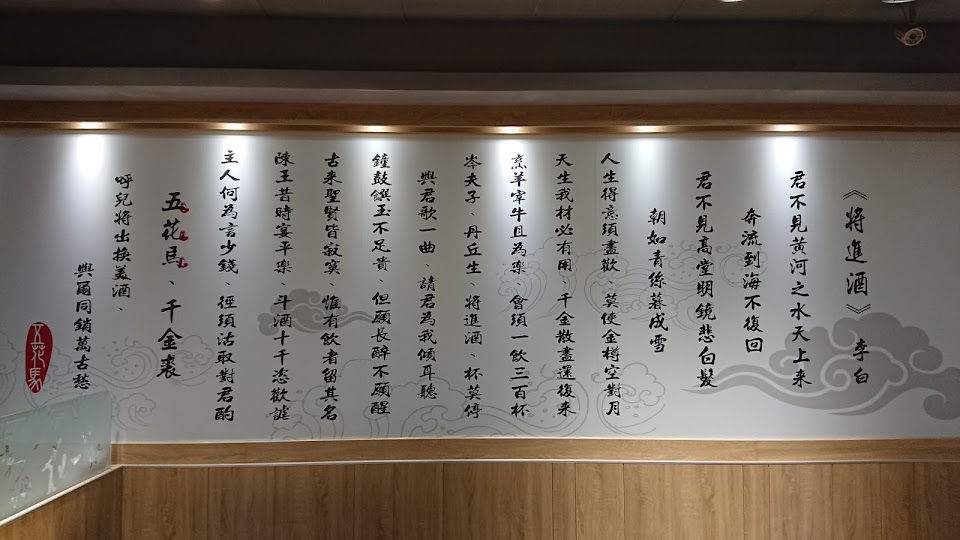 《將進酒》 李白
君不見黃河之水天上來
奔流到海不復回
君不見高堂明鏡悲白髮
朝如青絲暮成雪
人生得意須盡歡、莫使金樽空對月
天生我材必有用、千金散盡還復來
烹羊宰牛且為樂、會須一飲三百杯
岑夫子、丹丘生、將進酒、杯莫停
與君歌一曲、請君為我傾耳聽
鐘鼓饌玉不足貴、但願長醉不願醒
古來聖賢皆寂寞、惟有飲者留其名
陳王昔時宴平樂、斗酒十千恣歡謔
主人何為言少錢、徑須沽取對君酌
五花馬、千金裘
呼兒將出換美酒、
與爾同銷萬古愁
五花馬